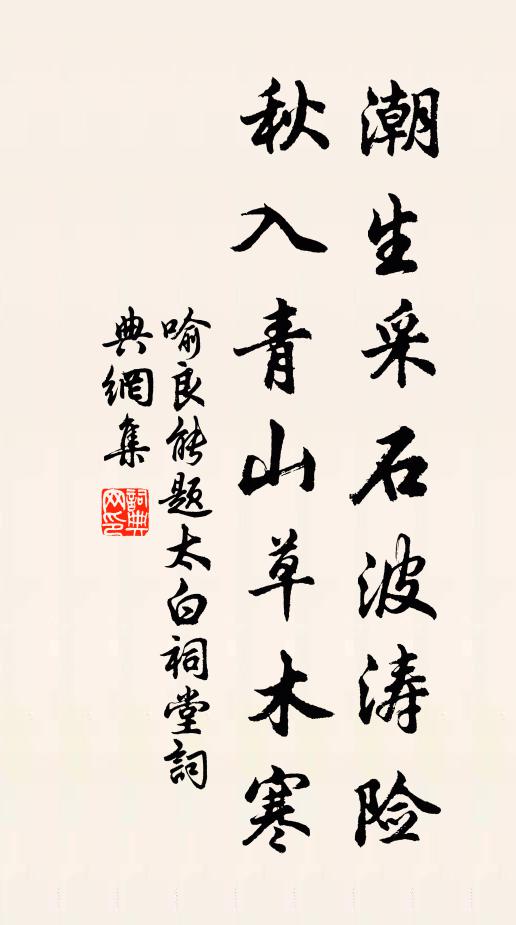 潮生采石波涛险
秋入青山草木寒
喻良能题太白祠堂詞
典網集
詞典网印